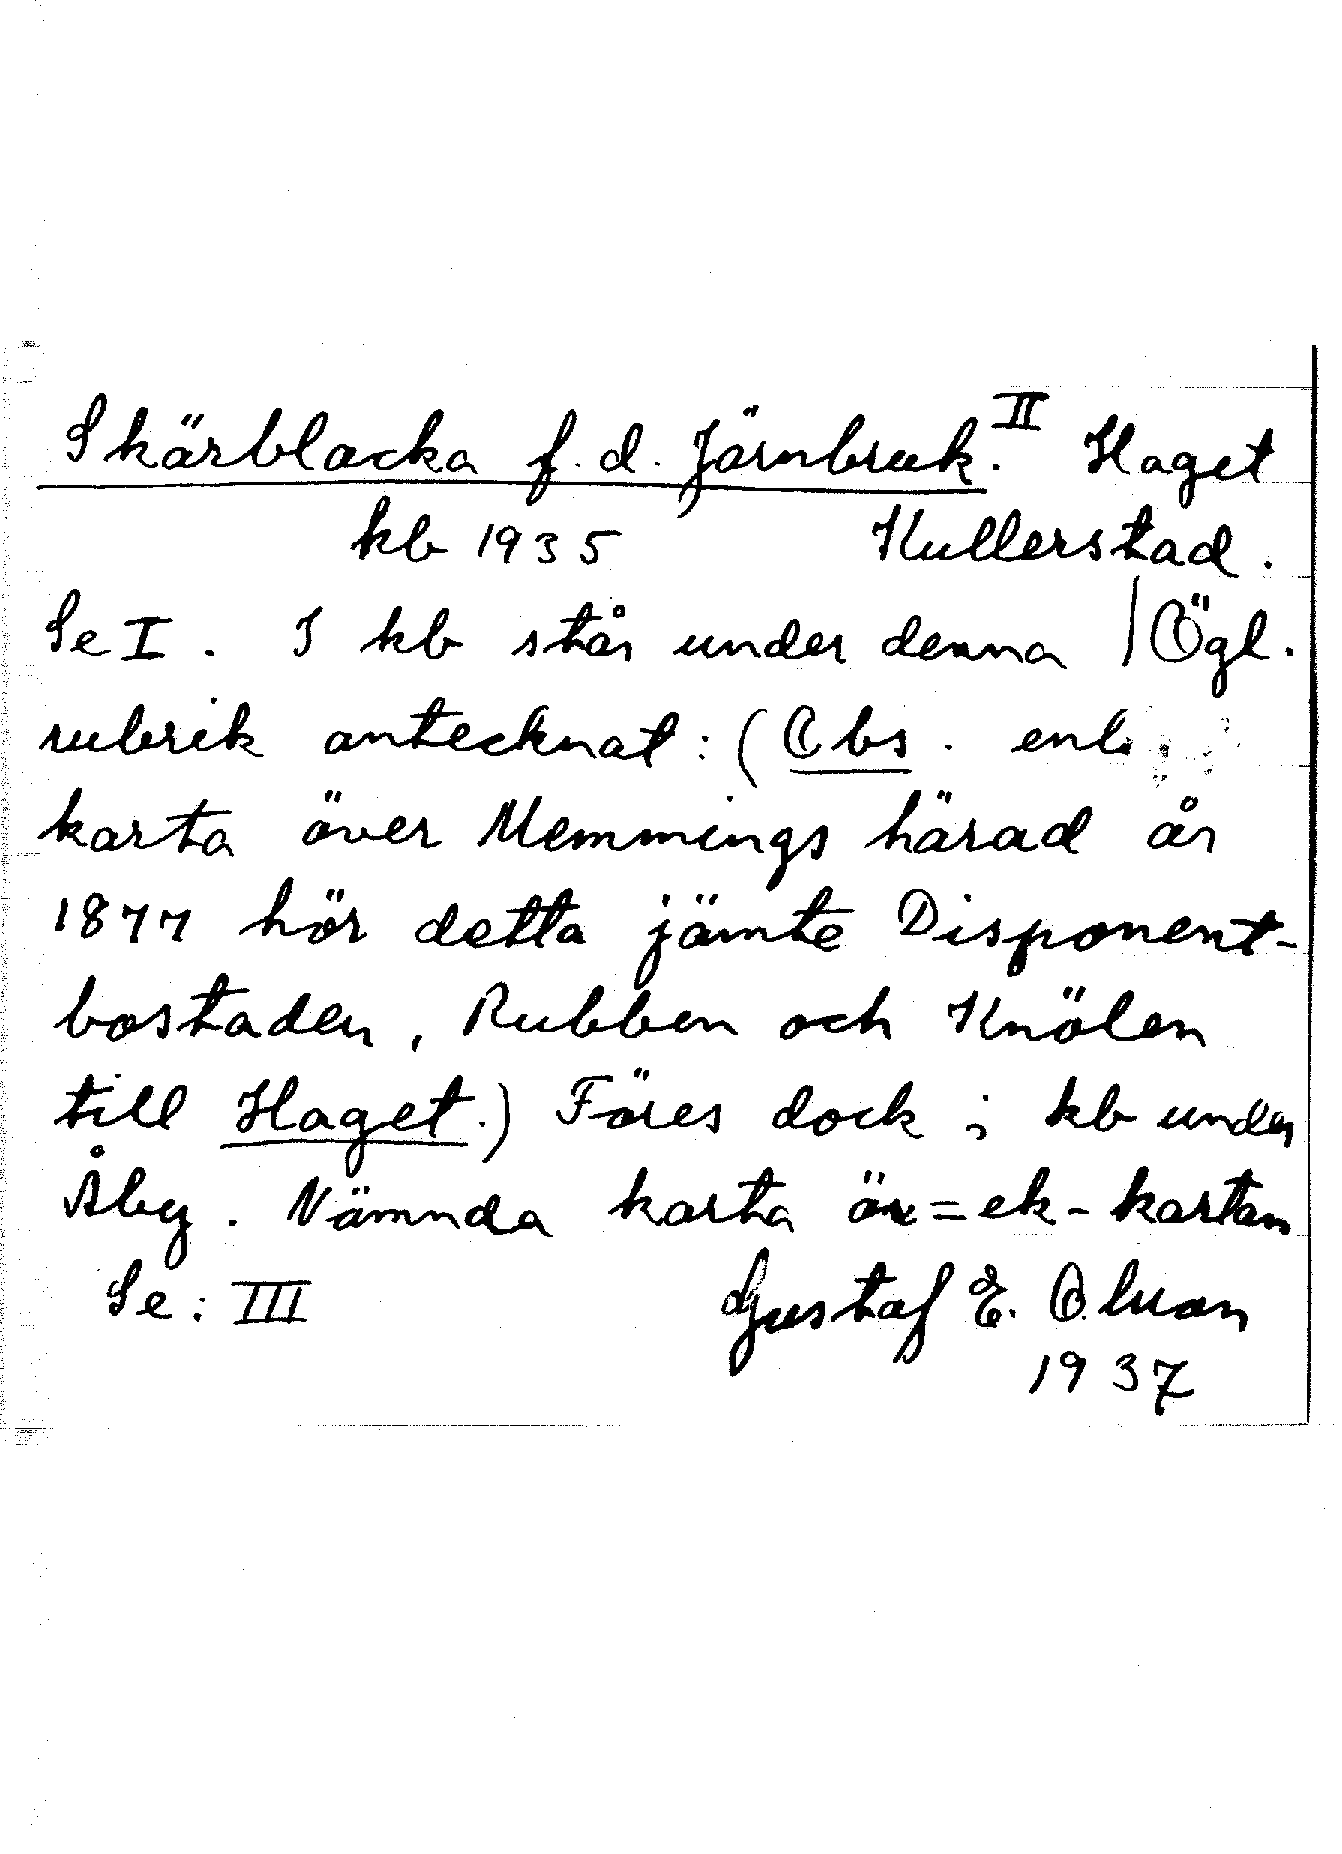 Skärblacka f.d. Järnbruk. II Haget
kb 1935 Kullerstad.
Se I. I kb står under denna | Ögl.
rubrik antecknat: (Obs. enl.
karta över Memmings härad år
1877 hör detta jämte Disponent-
bostaden, Rubben och Knölen
till Haget.) Föres dock i kb under
Åby. Nämnda karta är = ek-kartan
Se: III Gustaf E.
1937